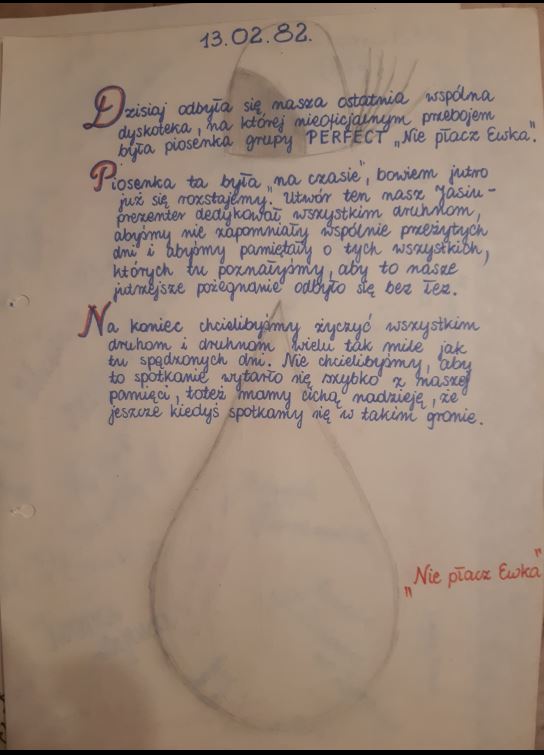 13.02.82.
Dzisiaj odbyła się nasza ostatnia wspólna
dyskoteka, na której nieoficjalnym przebojem
była piosenka grupy PERFECT „Nie płacz Ewka".
Piosenka ta była „na czasie", bowiem jutro
już się rozstajemy. Utwór ten nasz Jasiu-
prezenter dedykował wszystkim druhnom,
abyśmy nie zapomniały wspólnie przeżytych
dni i abyśmy pamiętały o tych wszystkich,
których tu poznałyśmy, aby to nasze
jutrzejsze pożegnanie odbyło się bez łez.
Na koniec chcielibyśmy życzyć wszystkim
druhom i druhnom wielu tak mile jak
tu spędzonych dni. Nie chcielibyśmy, aby
to spotkanie wytarło się szybko z naszej
pamięci, toteż mamy cichą nadzieję, że
jeszcze kiedyś spotkamy się w takim gronie.
„Nie płacz Ewka"